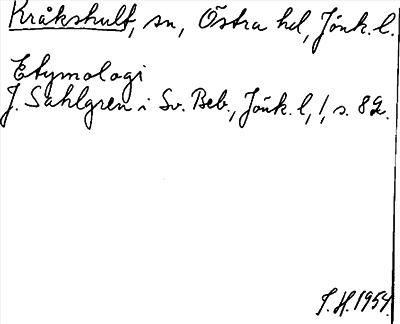 Kråkshult, sn, Östra hd, Jönk. l.
Etymologi
J. Sahlgren i Sv. Beb., Jönk. l, 1, s. 82.
I. H. 1954.